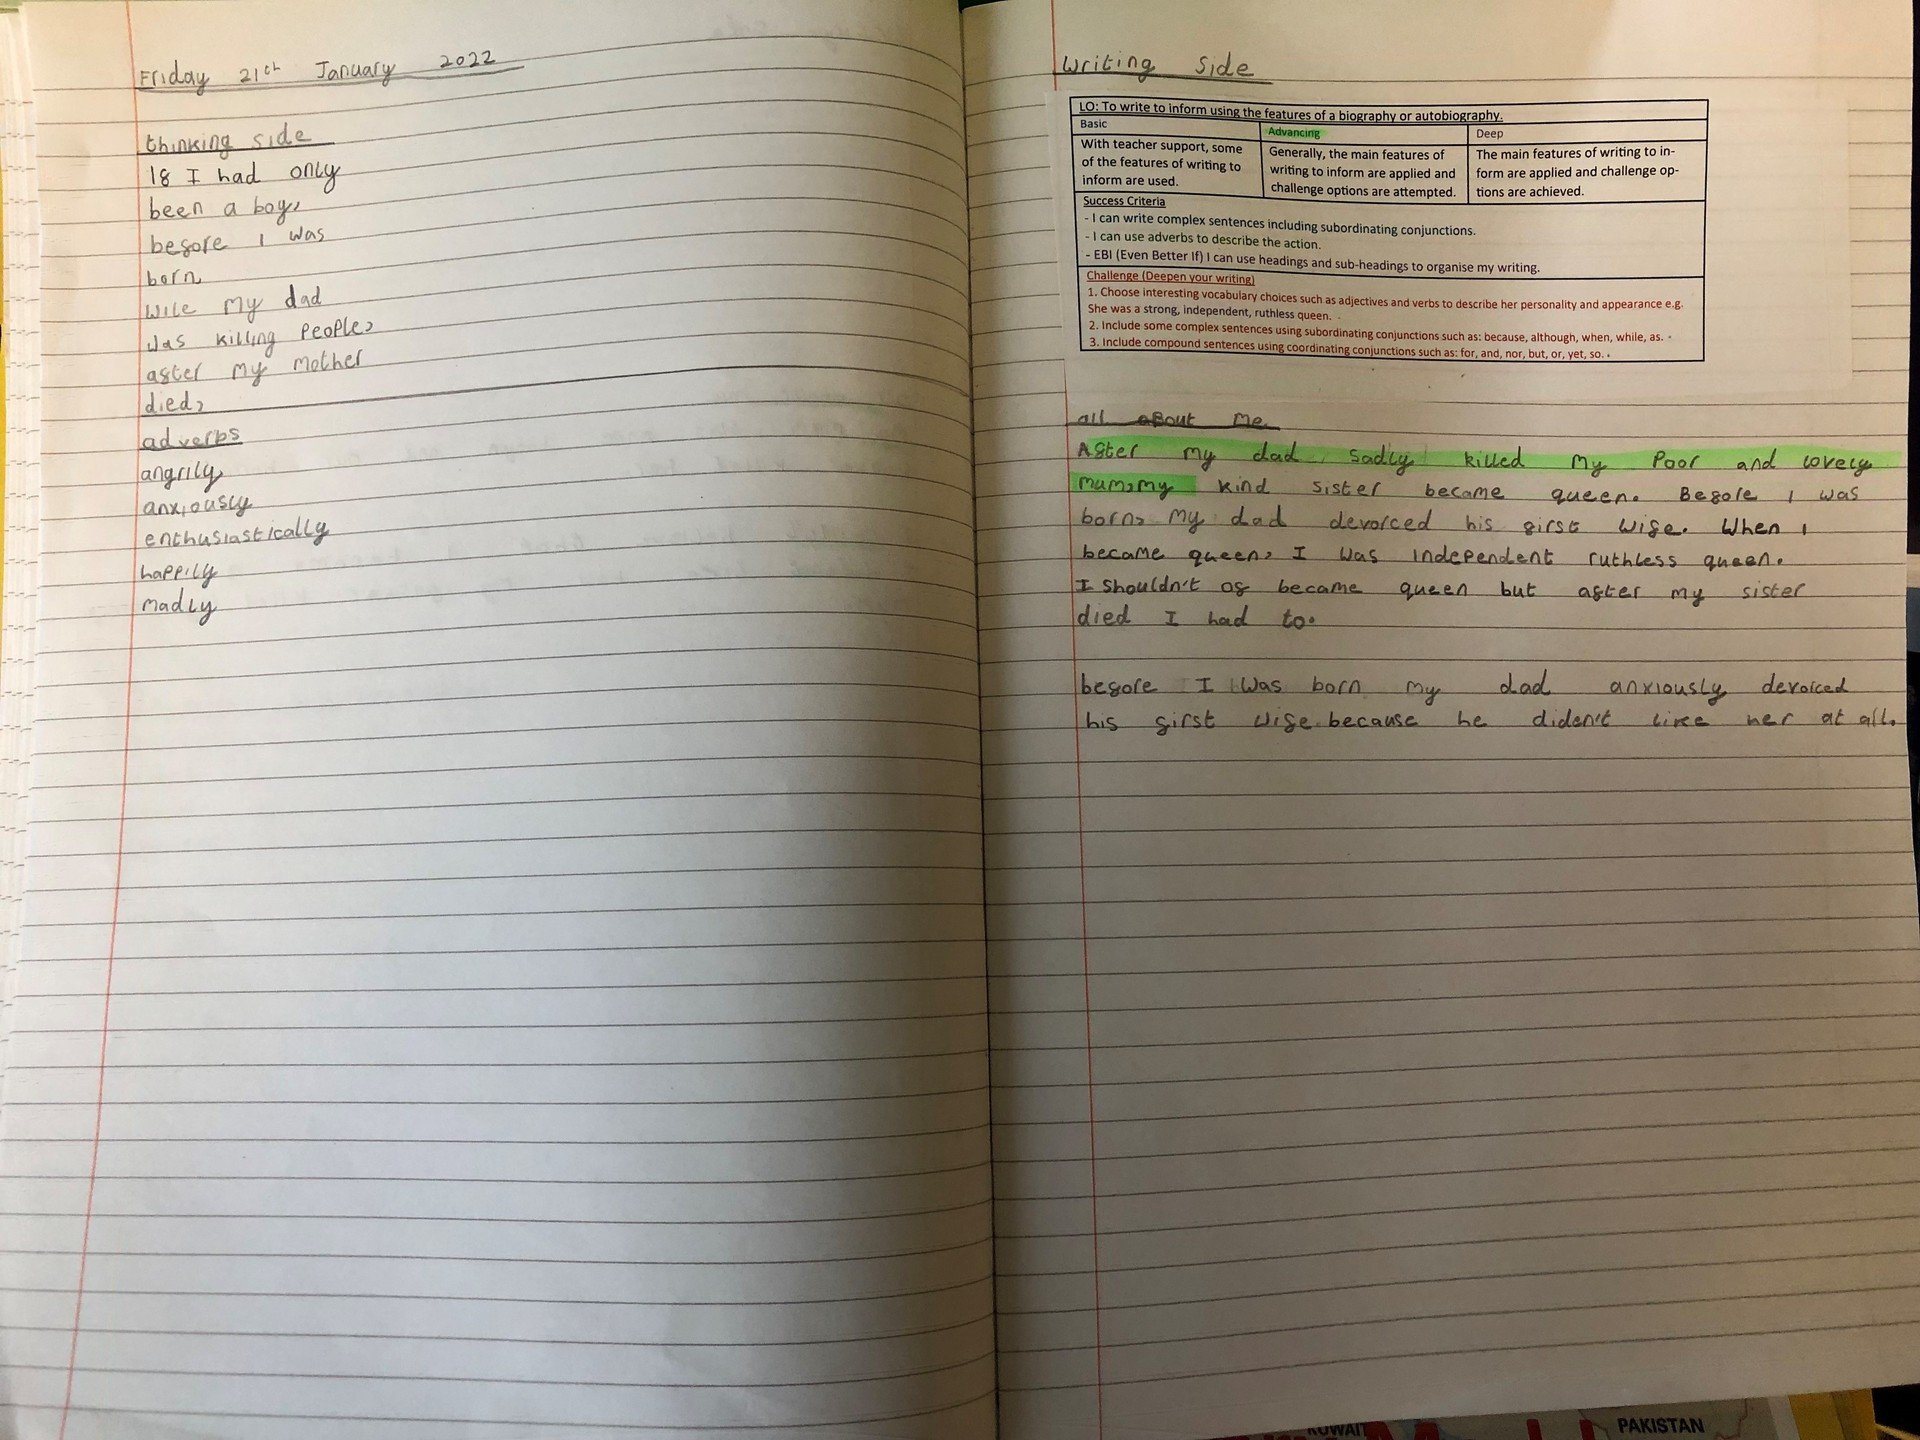 Friday 21th January 2022
thinking side
18 I had only
been a boy,
before I was
born
wile my dad
was killing people,
after my mother
died,
adverbs
angrily
anxiously
enthusiastically
happily
madly
Writing side
LO: To write to inform using the features of a biography or autobiography.
Basic
With teacher support, some
of the features of writing to
inform are used.
Advancing
Generally, the main features of
writing to inform are applied and
challenge options are attempted.
Deep
The main features of writing to in-
form are applied and challenge op-
tions are achieved.
Success Criteria
- I can write complex sentences including subordinating conjunctions.
- I can use adverbs to describe the action.
- EBI (Even Better If) I can use headings and sub-headings to organise my writing.
Challenge (Deepen your writing)
1. Choose interesting vocabulary choices such as adjectives and verbs to describe her personality and appearance e.g.
She was a strong, independent, ruthless queen.
2. Include some complex sentences using subordinating conjunctions such as: because, although, when, while, as.
3. Include compound sentences using coordinating conjunctions such as: for, and, nor, but, or, yet, so.
all about me
After my dad sadly killed my poor and lovely
mum, my kind sister became queen. Before I was
born, my dad devorced his first wife. When I
became queen, I was independent ruthless queen.
I shouldn't of became queen but after my sister
died I had to.
before I was born my dad anxiously devorced
his first wife because he diden't like her at all.
KUWAIT
PAKISTAN